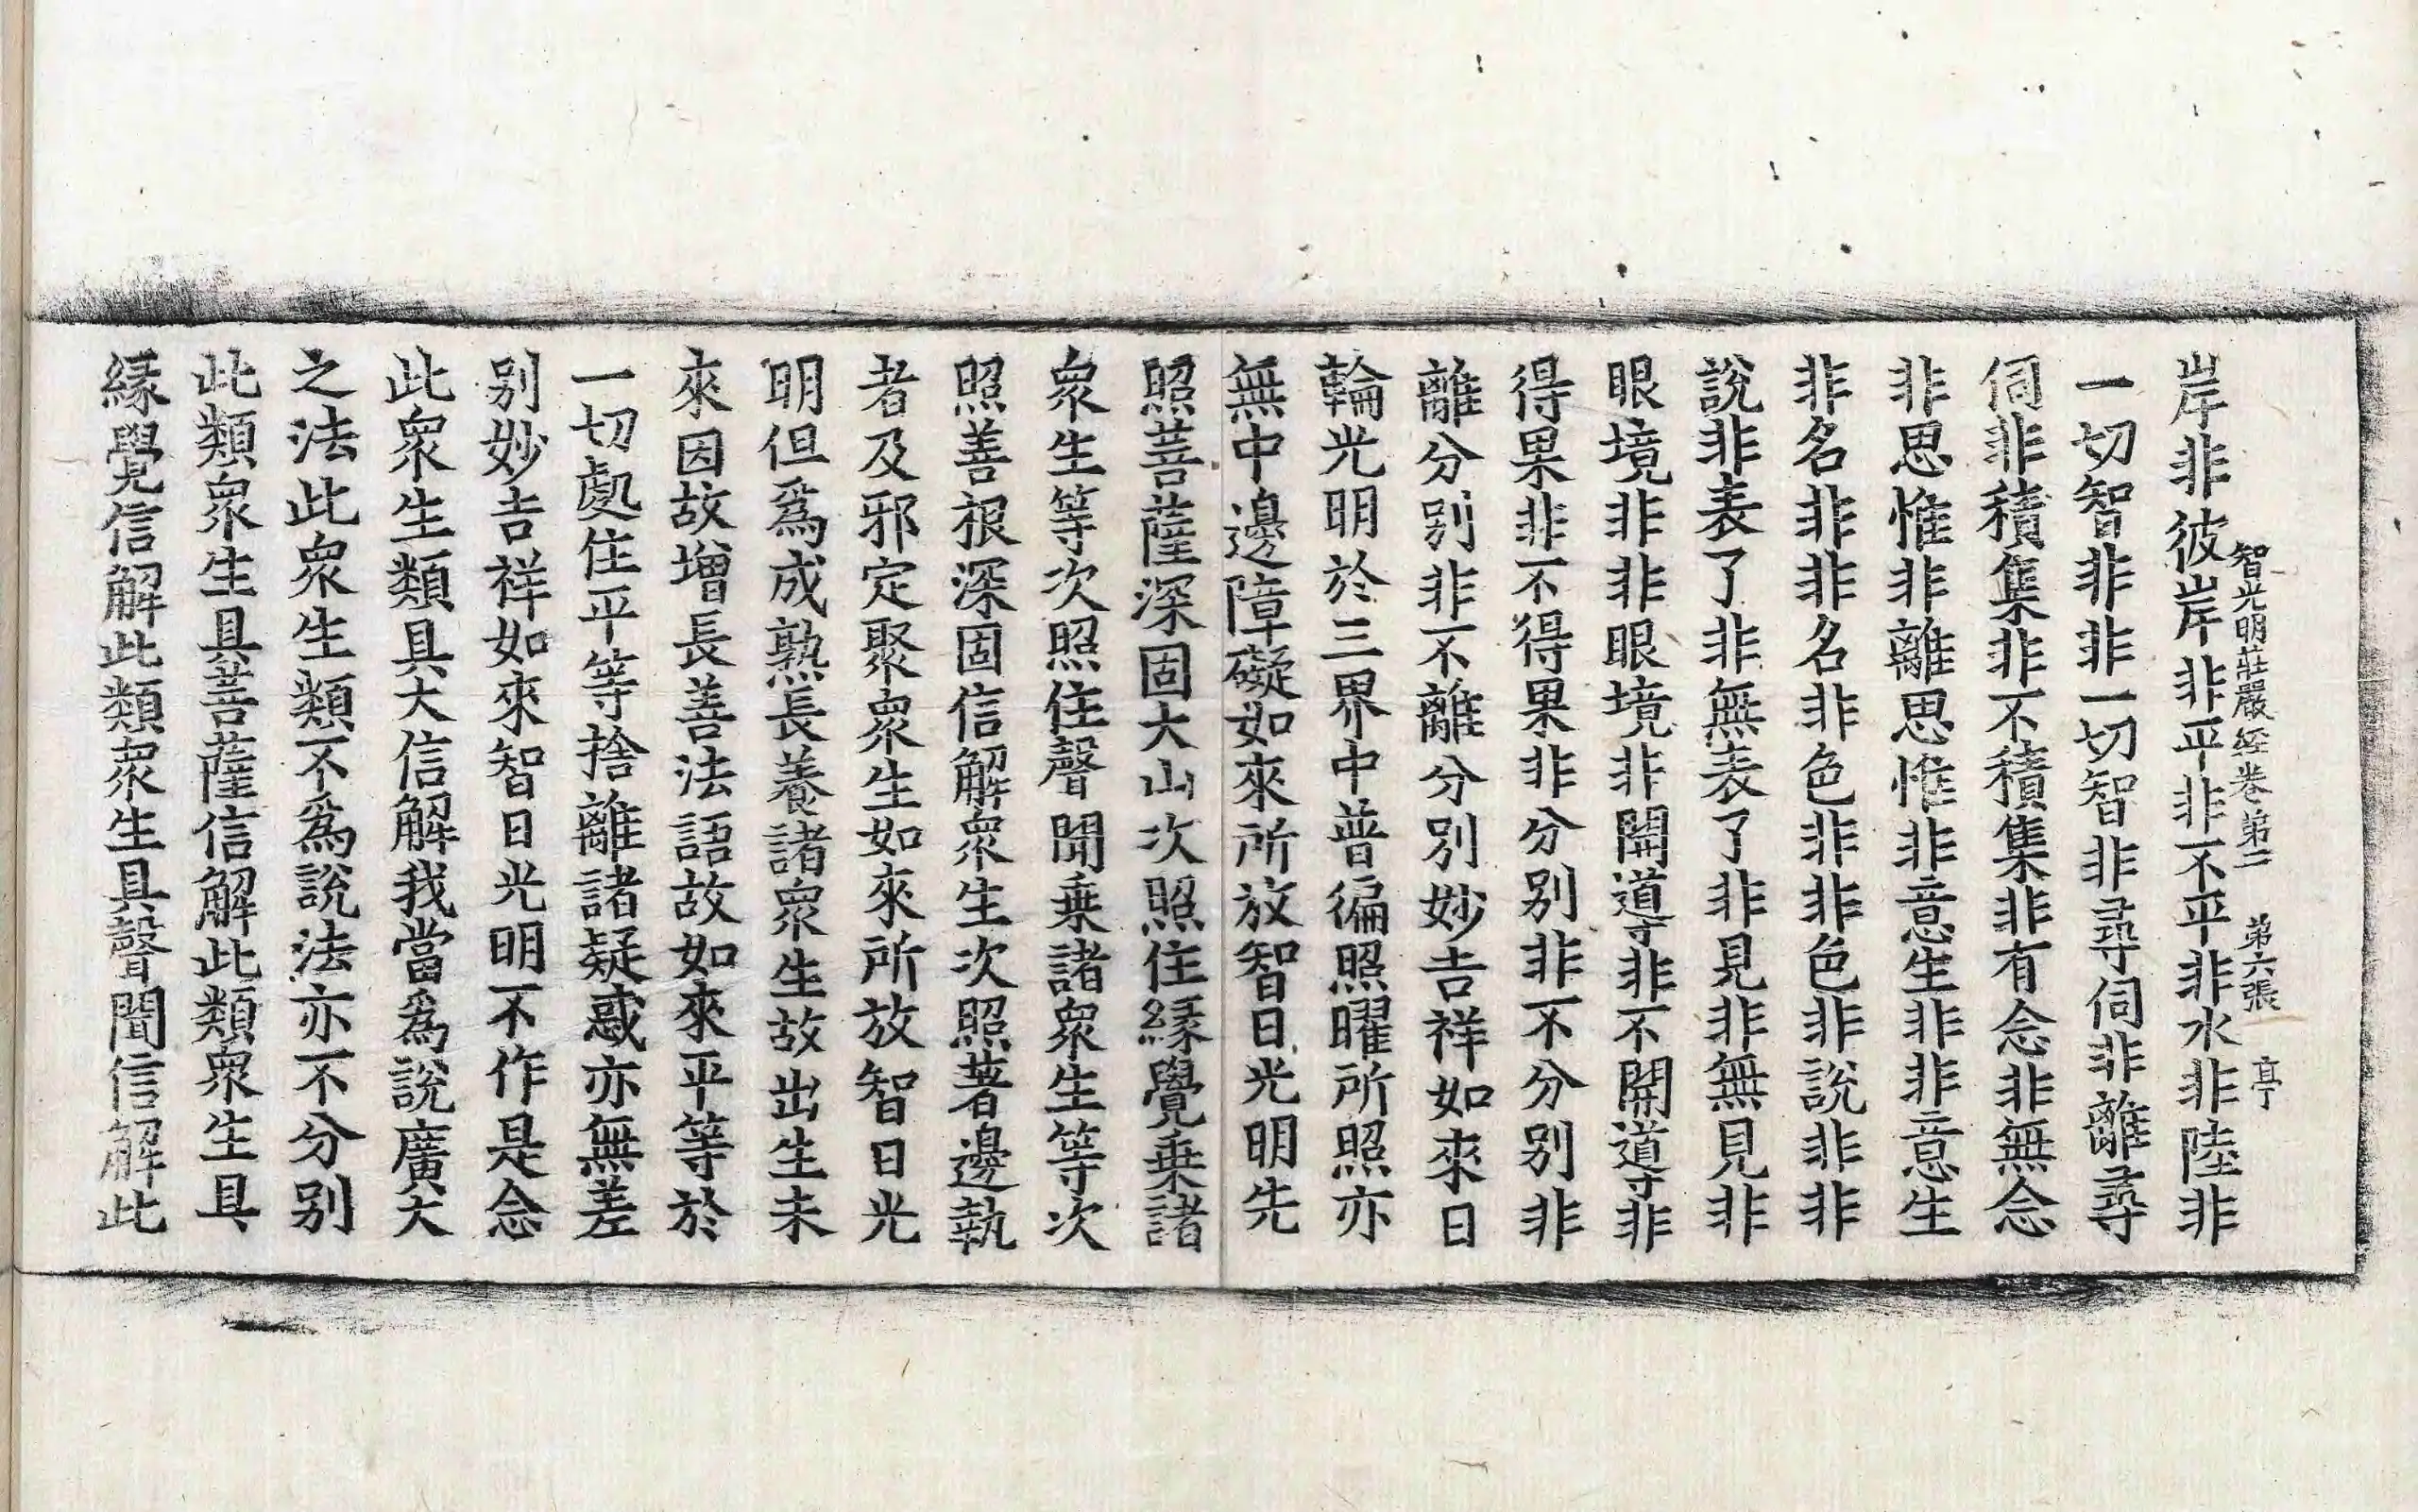 智光明莊嚴経卷第二 第六張 亭
岸非彼岸非平非不平非水非陸非
一切智非非一切智非尋伺非離尋
伺非積集非不積集非有念非無念
非思惟非離思惟非意生非非意生
非名非非名非色非非色非說非非
說非表了非無表了非見非無見非
眼境非非眼境非開導非不開導非
得果非不得果非分別非不分別非
離分別非不離分別妙吉祥如來日
輪光明於三界中普徧照曜所照亦
無中邊障礙如來所放智日光明先
照菩薩深固大山次照住緣覺乗諸
衆生等次照住聲聞乗諸衆生等次
照善根深固信解衆生次照著邊執
者及邪定聚衆生如來所放智日光
明但爲成熟長養諸衆生故出生未
來因故增長善法語故如來平等於
一切處住平等捨離諸疑惑亦無差
別妙吉祥如來智日光明不作是念
此衆生類具大信解我當爲說廣大
之法此衆生類不爲說法亦不分別
此類衆生具菩薩信解此類衆生具
緣覺信解此類衆生具聲聞信解此